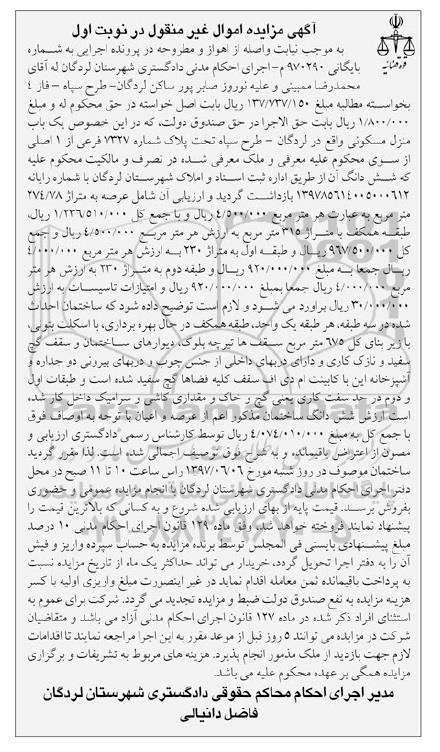 آگهی مزایده اموال غیر منقول در نوبت اول
قوه قضائیه
به موجب نیابت واصله از اهواز و مطروحه در پرونده اجرایی به شماره
بایگانی ۹۷۰۲۹۰ م-اجرای احکام مدنی دادگستری شهرستان لردگان له آقای
محمدرضا ممبینی و علیه نوروز صابر پور ساکن لردگان- طرح سپاه – فاز ٤
بخواسته مطالبه مبلغ ۱۳۷/۷۳۷/۱۵۰ ریال بابت اصل خواسته در حق محکوم له و مبلغ
۱/۸۰۰/۰۰۰ ریال بابت حق الاجرا در حق صندوق دولت، که در این خصوص یک باب
منزل مسکونی واقع در لردگان - طرح سپاه تحت پلاک شماره ۷۳۲۷ فرعی از ۱ اصلی
از سوی محکوم علیه معرفی و ملک معرفی شده در تصرف و مالکیت محکوم علیه
که شش دانگ آن از طریق اداره ثبت اسناد و املاک شهرستان لردگان با شماره رایانه
۱۳۹۷۸۵۶۱۴۰۰۵۰۰۰۶۱۲ بازداشت گردید و ارزیابی آن شامل عرصه به متراژ ۲۷٤/۷۸
متر مربع به عبارت هر متر مربع ٤/۵۰۰/۰۰۰ ریال و با جمع کل ۱/۲۳۶/۵۱۰/۰۰۰ ریال،
طبقه همکف با متراژ ۳۱۵ متر مربع به ارزش هر متر مربع ٤/۵۰۰/۰۰۰ ریال و جمع
کل ۹۶۷/۵۰۰/۰۰۰ ریال و طبقه اول به متراژ ۲۳۰ به ارزش هر متر مربع ٤/۰۰۰/۰۰۰
ریال جمعا به مبلغ ۹۲۰/۰۰۰/۰۰۰ ریال و طبقه دوم به متراژ ۲۳۰ به ارزش هر متر
مربع ٤/۰۰۰/۰۰۰ ریال جمعا بمبلغ ۹۲۰/۰۰۰/۰۰۰ ریال و امتیازات تاسیسات به ارزش
۳۰/۰۰۰/۰۰۰ ریال براورد می شود و لازم است توضیح داده شود که ساختمان احداث
شده در سه طبقه، هر طبقه یک واحد، طبقه همکف در حال بهره برداری، با اسکلت بتونی،
با زیر بنای کل ۶۷۵ متر مربع سقف ها تیرچه بلوک، دیوارهای ساختمان و سقف گچ
سفید و نازک کاری و دارای دربهای داخلی از جنس چوب و دربهای بیرونی دو جداره و
آشپزخانه این با کابینت ام دی اف سقف کلیه فضاها گچ سفید شده است و طبقات اول
و دوم در حد سفت کاری یعنی گچ و خاک و مقداری کاشی و سرامیک داخل کار شده،
است ارزش شش دانگ ساختمان مذکور اعم از عرصه و اعیان با توجه به اوصاف فوق
با جمع کل به مبلغ ٤/۰۷٤/۰۱۰/۰۰۰ ریال توسط کارشناس رسمی دادگستری ارزیابی و
مصون از اعتراض باقیمانده، و به شرح فوق توصیف اجمالی شده است. لذا مقرر گردید
ساختمان موصوف در روز شنبه مورخ ۱۳۹۷/۰۷/۰۶ راس ساعت ۱۰ تا ۱۱ صبح در محل
دفتر اجرای احکام مدنی دادگستری شهرستان لردگان با انجام مزایده عمومی و حضوری
بفروش برسد. قیمت پایه از بهای ارزیابی شده شروع و به کسانی که بالاترین قیمت را
پیشنهاد نمایند فروخته خواهد شد، وفق ماده ۱۲۹ قانون اجرای احکام مدنی ۱۰ درصد
مبلغ پیشنهادی بایستی فی المجلس توسط برنده مزایده به حساب سپرده واریز و فیش
آن را به دفتر اجرا تحویل گردد، خریدار می تواند حداکثر یک ماه از تاریخ مزایده نسبت
به پرداخت باقیمانده ثمن معامله اقدام نماید در غیر اینصورت مبلغ واریزی اولیه با کسر
هزینه مزایده به نفع صندوق دولت ضبط و مزایده تجدید می گردد. شرکت برای عموم به
استثنای افراد ذکر شده در ماده ۱۲۷ قانون اجرای احکام مدنی آزاد می باشد و متقاضیان
شرکت در مزایده می توانند ۵ روز قبل از موعد مقرر به این اجرا مراجعه نمایند تا اقدامات
لازم جهت بازدید از ملک مذکور انجام پذیرد. هزینه های مربوط به تشریفات و برگزاری
مزایده همگی بر عهده محکوم علیه می باشد.
مدیر اجرای احکام محاکم حقوقی دادگستری شهرستان لردگان
فاضل دانیالی